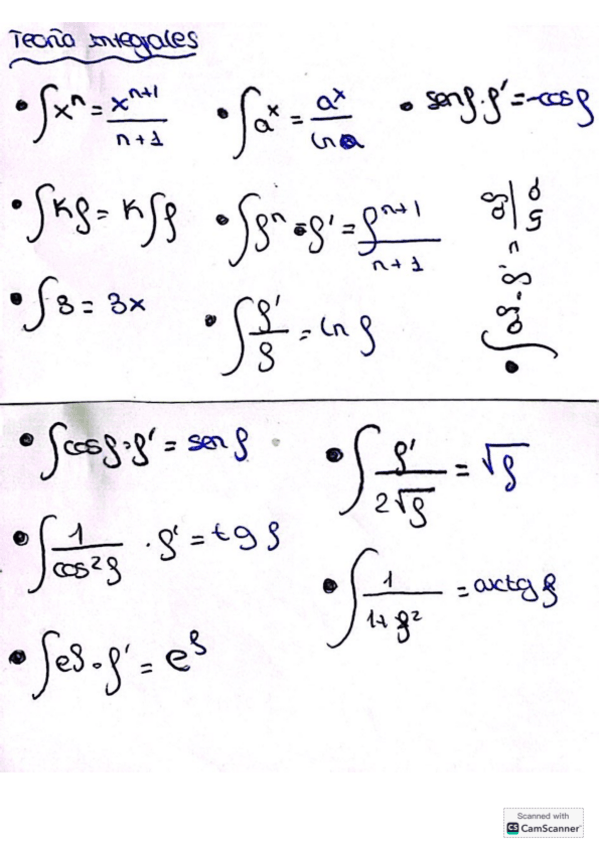 Teoría integrales
• ∫xⁿ = xⁿ⁺¹/n+1
• ∫aˣ = aˣ/ln a
• sen f · f' = -cos f
• ∫K f = K ∫f
• ∫fⁿ · f' = fⁿ⁺¹/n+1
• ∫3 = 3x
• ∫f'/f = ln f
• ∫cos f · f' = sen f
• ∫f'/2√f = √f
• ∫1/cos² f · f' = tg f
• ∫1/1+f² = arctg f
• ∫e f · f' = eᶠ
Scanned with
CS CamScanner